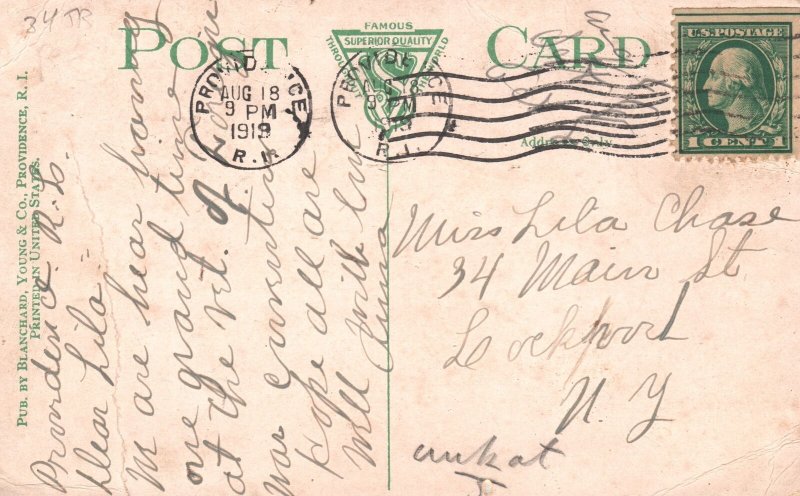 34 JR
POST CARD
FAMOUS
SUPERIOR QUALITY
THROUGHOUT THE WORLD
PROVIDENCE
AUG 18
9 PM
1919
R.I.
PROVIDENCE
9 PM
R.I.
U.S. POSTAGE
1 CENT 1
Address Only.
PUB. BY BLANCHARD, YOUNG & CO., PROVIDENCE, R. I.
PRINTED IN UNITED STATES.
Providence R.I.
Dear Lila"
We are hear from
one grand time
at the vet. of
war
Hope all are
well. With love
Miss Lila Chase
34 Main St
Lockport
N. Y